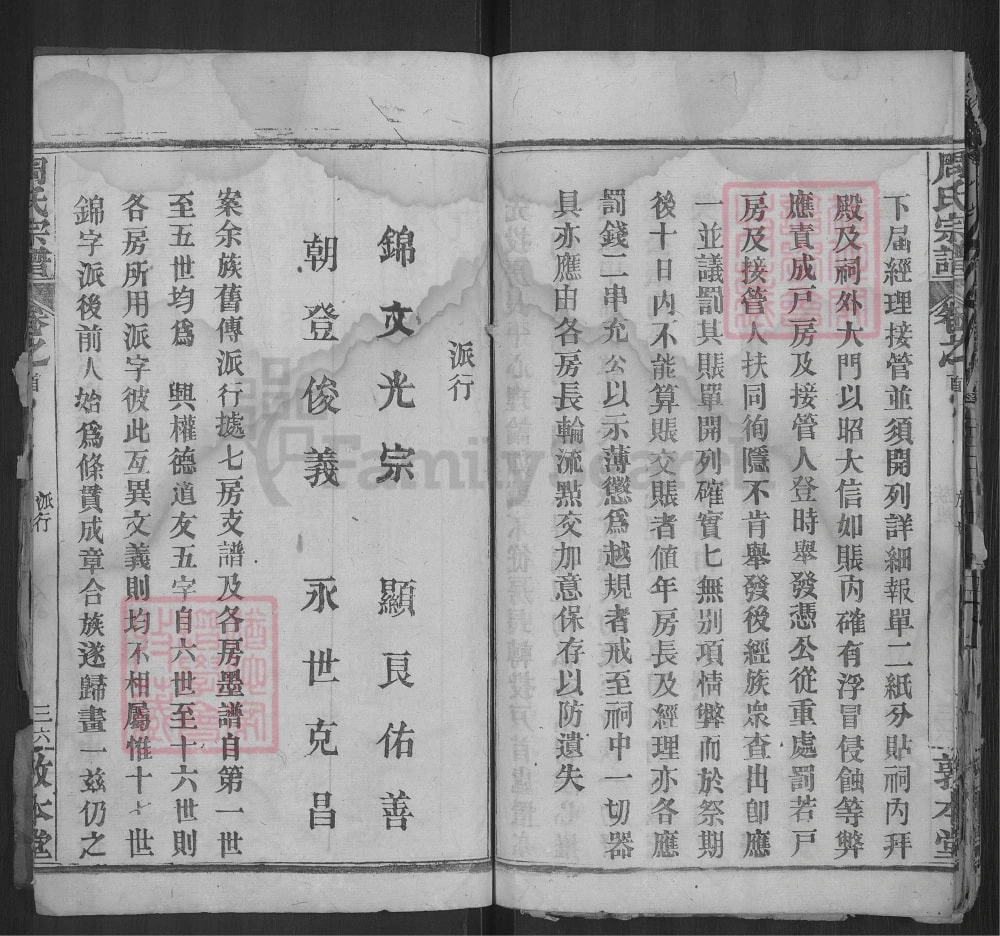 周氏宗譜
卷之首
敦本堂
下屆經理接管並須開列詳細報單二紙分貼祠內拜
殿及祠外大門以昭大信如賬內確有浮冒侵蝕等弊
應責成戸房及接管人登時舉發憑公從重處罰若戸
房及接管人扶同徇隱不肯舉發後經族衆查出卽應
一並議罰其賬單開列確實乜無别項情弊而於祭期
後十日內不能算賬交賬者值年房長及經理亦各應
罰錢二串充公以示薄懲爲越規者戒至祠中一切器
具亦應由各房長輪流點交加意保存以防遺失
派行
錦文光宗 顯良佑善
朝登俊義 永世克昌
案余族舊傳派行㨿七房支譜及各房墨譜自第一世
至五世均爲 興權德道友五字自六世至十六世則
各房所用派字彼此互異文義則均不相屬惟十七世
錦字派後前人始爲條貫成章合族遂歸畫一茲仍之
周氏宗譜
卷之首
派行
三六
敦本堂
FamilySearch